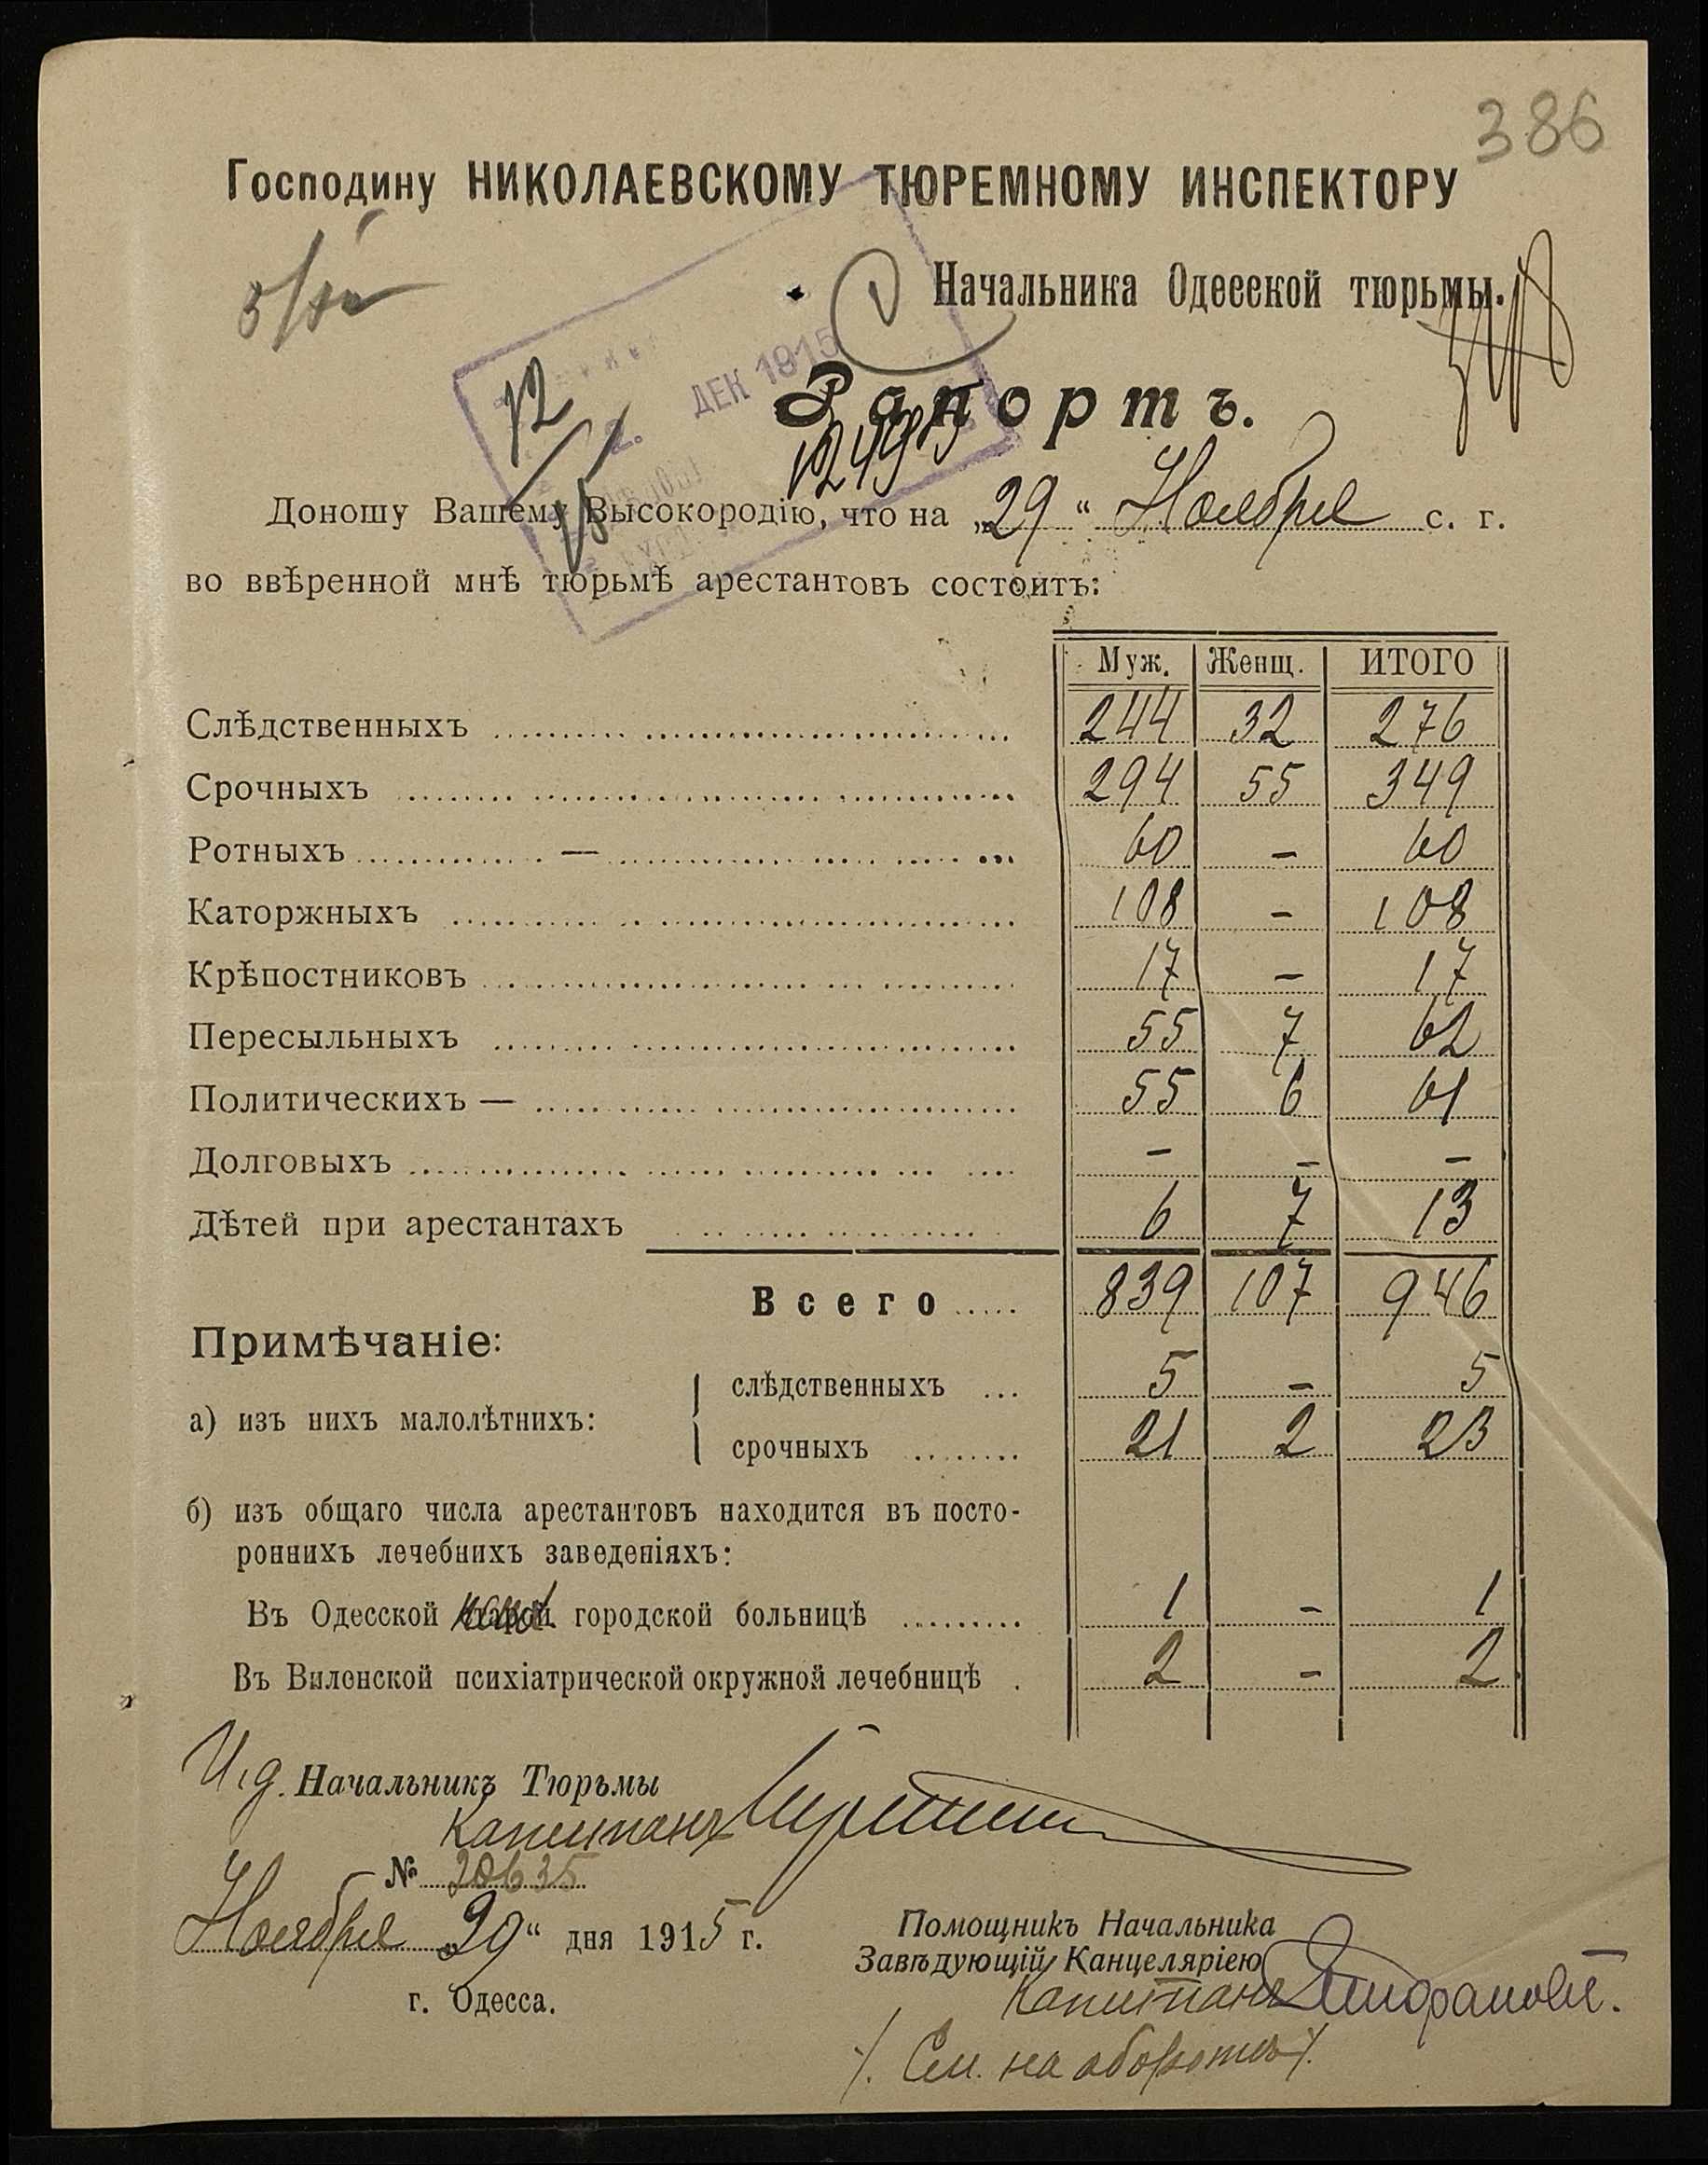 386
Господину НИКОЛАЕВСКОМУ ТЮРЕМНОМУ ИНСПЕКТОРУ
Начальника Одесской тюрьмы.
12 ДЕК 1915
Рапортъ.
12495
Доношу Вашему Высокородію, что на „29“ Ноября с. г.
во ввѣренной мнѣ тюрьмѣ арестантовъ состоитъ:
Муж. Женщ. ИТОГО
Слѣдственныхъ 244 32 276
Срочныхъ 294 55 349
Ротныхъ — 60 - 60
Каторжныхъ 108 - 108
Крѣпостниковъ 17 - 17
Пересыльныхъ 55 7 62
Политическихъ — 55 6 61
Долговыхъ - - -
Дѣтей при арестантахъ 6 7 13
Всего 839 107 946
Примѣчаніе:
а) изъ нихъ малолѣтнихъ:
слѣдственныхъ 5 - 5
срочныхъ 21 2 23
б) изъ общаго числа арестантовъ находится въ посто-
роннихъ лечебнихъ заведеніяхъ:
Въ Одесской городской больницѣ 1 - 1
Въ Виленской психіатрической окружной лечебницѣ 2 - 2
И.д. Начальникъ Тюрьмы
Капитанъ
№ 20635
Ноября „29“ дня 1915 г.
г. Одесса.
Помощникъ Начальника
Завѣдующій Канцеляріею
Капитанъ
/. См. на оборотѣ /.